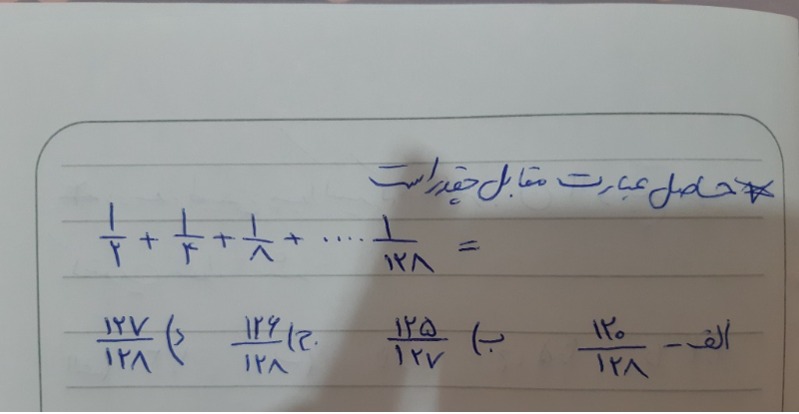 * حاصل عبارت مقابل چقدر است
۱/۲ + ۱/۴ + ۱/۸ + .... ۱/۱۲۸ =
الف - ۱۲۰/۱۲۸ ب) ۱۲۵/۱۲۷ ج) ۱۲۶/۱۲۸ د) ۱۲۷/۱۲۸